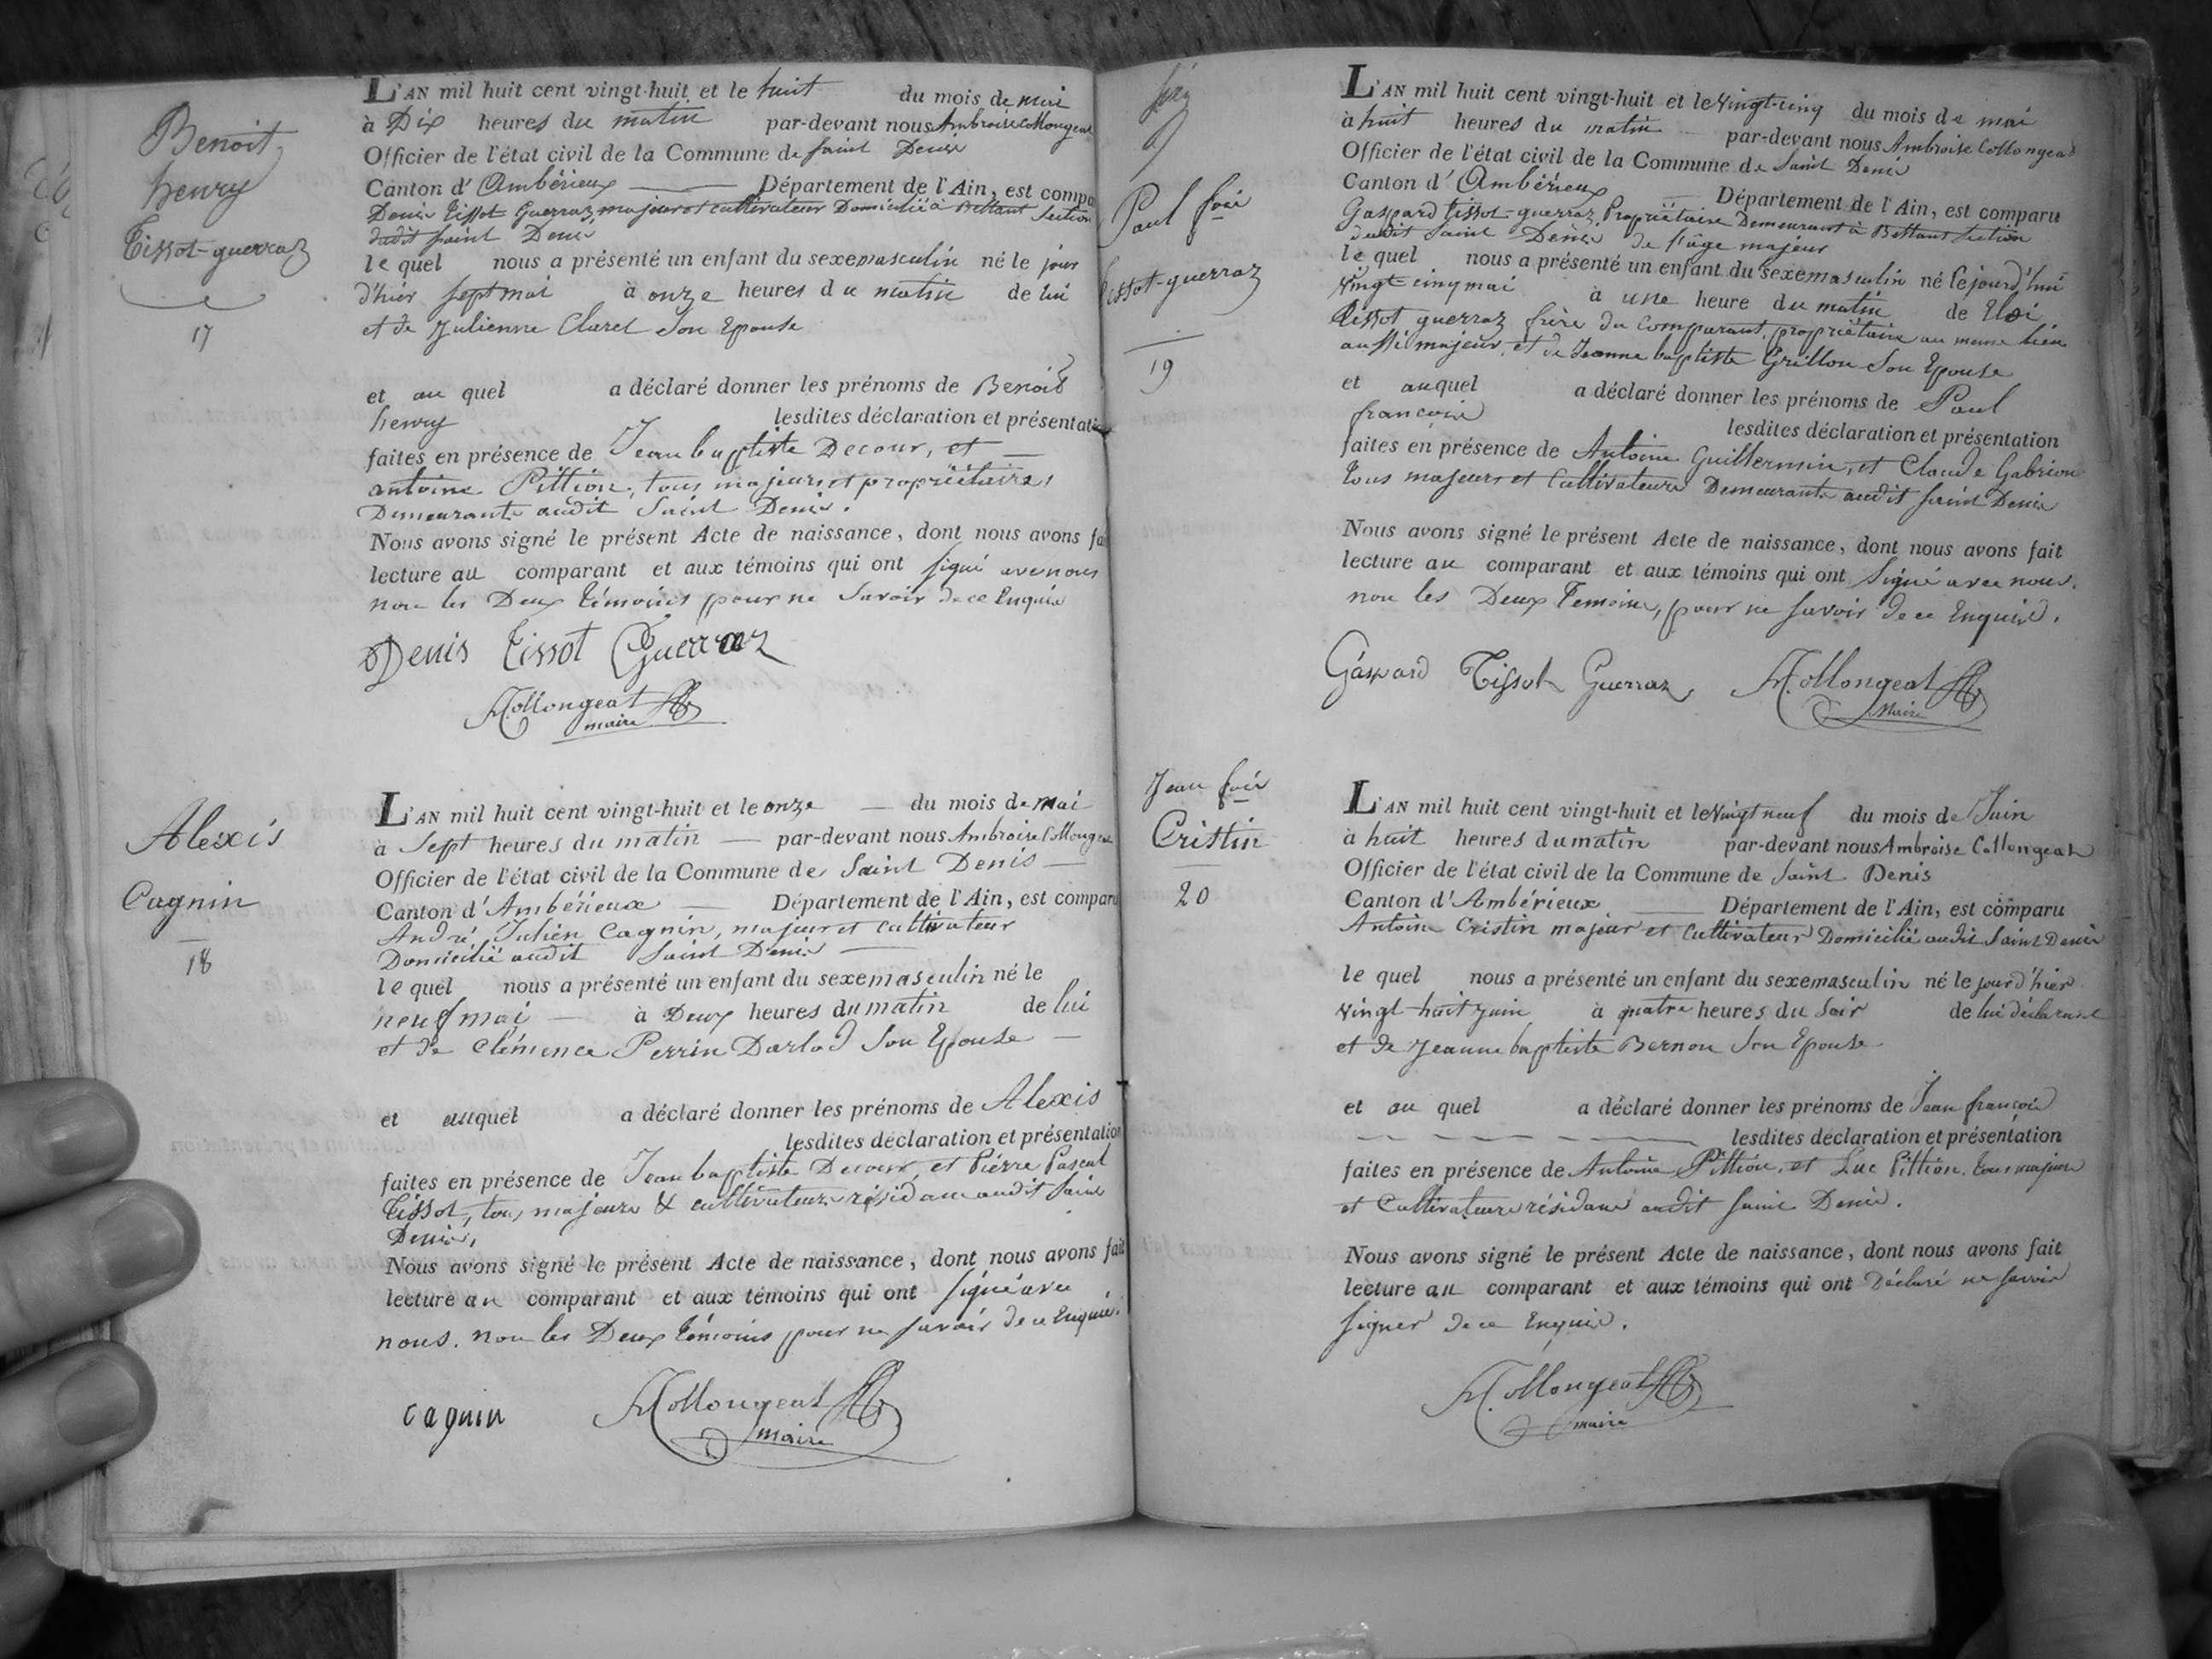 Benoit
henry
Tissot-guerraz
17
L'AN mil huit cent vingt-huit et le huit du mois de mai
à Dix heures du matin par-devant nous Ambroise Collongeat
Officier de l'état civil de la Commune de saint Denis
Canton d'Ambérieux Département de l'Ain, est compa
Denis Tissot Guerraz, majeur et cultivateur Domicilié à Bettant Section
dudit saint Denis
lequel nous a présenté un enfant du sexe masculin né le jour
d'hier sept mai à onze heures du matin de lui
et de Julienne Claret son Epouse
et au quel a déclaré donner les prénoms de Benoit
henry lesdites déclaration et présentati
faites en présence de Jean baptiste Decour, et
antoine Pittion, tous majeurs et propriétaires,
Demeurants audit Saint Denis.
Nous avons signé le présent Acte de naissance, dont nous avons fai
lecture au comparant et aux témoins qui ont signé avec nous
non les Deux témoins pour ne Savoir de ce Enquis
Denis Tissot Guerraz
Collongeat
maire
Alexis
Cagnin
18
L'AN mil huit cent vingt-huit et le onze du mois de mai
à Sept heures du matin par-devant nous Ambroise Collongeat
Officier de l'état civil de la Commune de Saint Denis
Canton d'Ambérieux Département de l'Ain, est comparu
André Julien Cagnin, majeur et cultivateur
Domicilié audit Saint Denis
lequel nous a présenté un enfant du sexe masculin né le
neuf mai à Deux heures du matin de lui
et de Clémence Perrin Darlod Son Epouse
et auquel a déclaré donner les prénoms de Alexis
lesdites déclaration et présentation
faites en présence de Jean baptiste Decour, et Pierre Pascal
Tissot, tous majeurs & cultivateurs résidans audit Saint
Denis,
Nous avons signé le présent Acte de naissance, dont nous avons fait
lecture au comparant et aux témoins qui ont signé avec
nous. non les Deux témoins pour ne savoir de ce Enquis.
cagnin
Collongeat
maire
Paul fois
Tissot-guerraz
19
L'AN mil huit cent vingt-huit et le Vingt-cinq du mois de mai
à huit heures du matin par-devant nous Ambroise Collongeat
Officier de l'état civil de la Commune de Saint Denis
Canton d'Ambérieux Département de l'Ain, est comparu
Gaspard tissot-guerraz, Propriétaire Demeurant à Bettant Section
dudit Saint Denis de l'âge majeur
le quel nous a présenté un enfant du sexe masculin né le jourd'hui
Vingt cinq mai à une heure du matin de Eloi
Tissot guerraz frère du Comparant, propriétaire au meme lieu
aussi majeur, et de Jeanne baptiste Grillon Son Epouse
et auquel a déclaré donner les prénoms de Paul
françois lesdites déclaration et présentation
faites en présence de Antoine Guillermin, et Claude Gabrion
tous majeurs et Cultivateurs Demeurants audit saint Denis
Nous avons signé le présent Acte de naissance, dont nous avons fait
lecture au comparant et aux témoins qui ont Signé avec nous,
non les Deux Temoins, pour ne savoir de ce Enquis.
Gaspard Tissot Guerraz
Collongeat
Maire
Jean fois
Cristin
20
L'AN mil huit cent vingt-huit et le Vingt neuf du mois de Juin
à huit heures du matin par-devant nous Ambroise Collongeat
Officier de l'état civil de la Commune de Saint Denis
Canton d'Ambérieux Département de l'Ain, est comparu
Antoine Cristin majeur et Cultivateur Domicilié audit Saint Denis
le quel nous a présenté un enfant du sexe masculin né le jour d'hier
Vingt-huit Juin à quatre heures du Soir de lui déclarant
et de Jeanne baptiste Bernon Son Epouse
et au quel a déclaré donner les prénoms de Jean françois
lesdites déclaration et présentation
faites en présence de Antoine Pittion, et Luc Pittion, tous majeurs
et Cultivateurs résidans audit Saint Denis.
Nous avons signé le présent Acte de naissance, dont nous avons fait
lecture au comparant et aux témoins qui ont Déclaré ne savoir
signer de ce Enquis.
Collongeat
maire